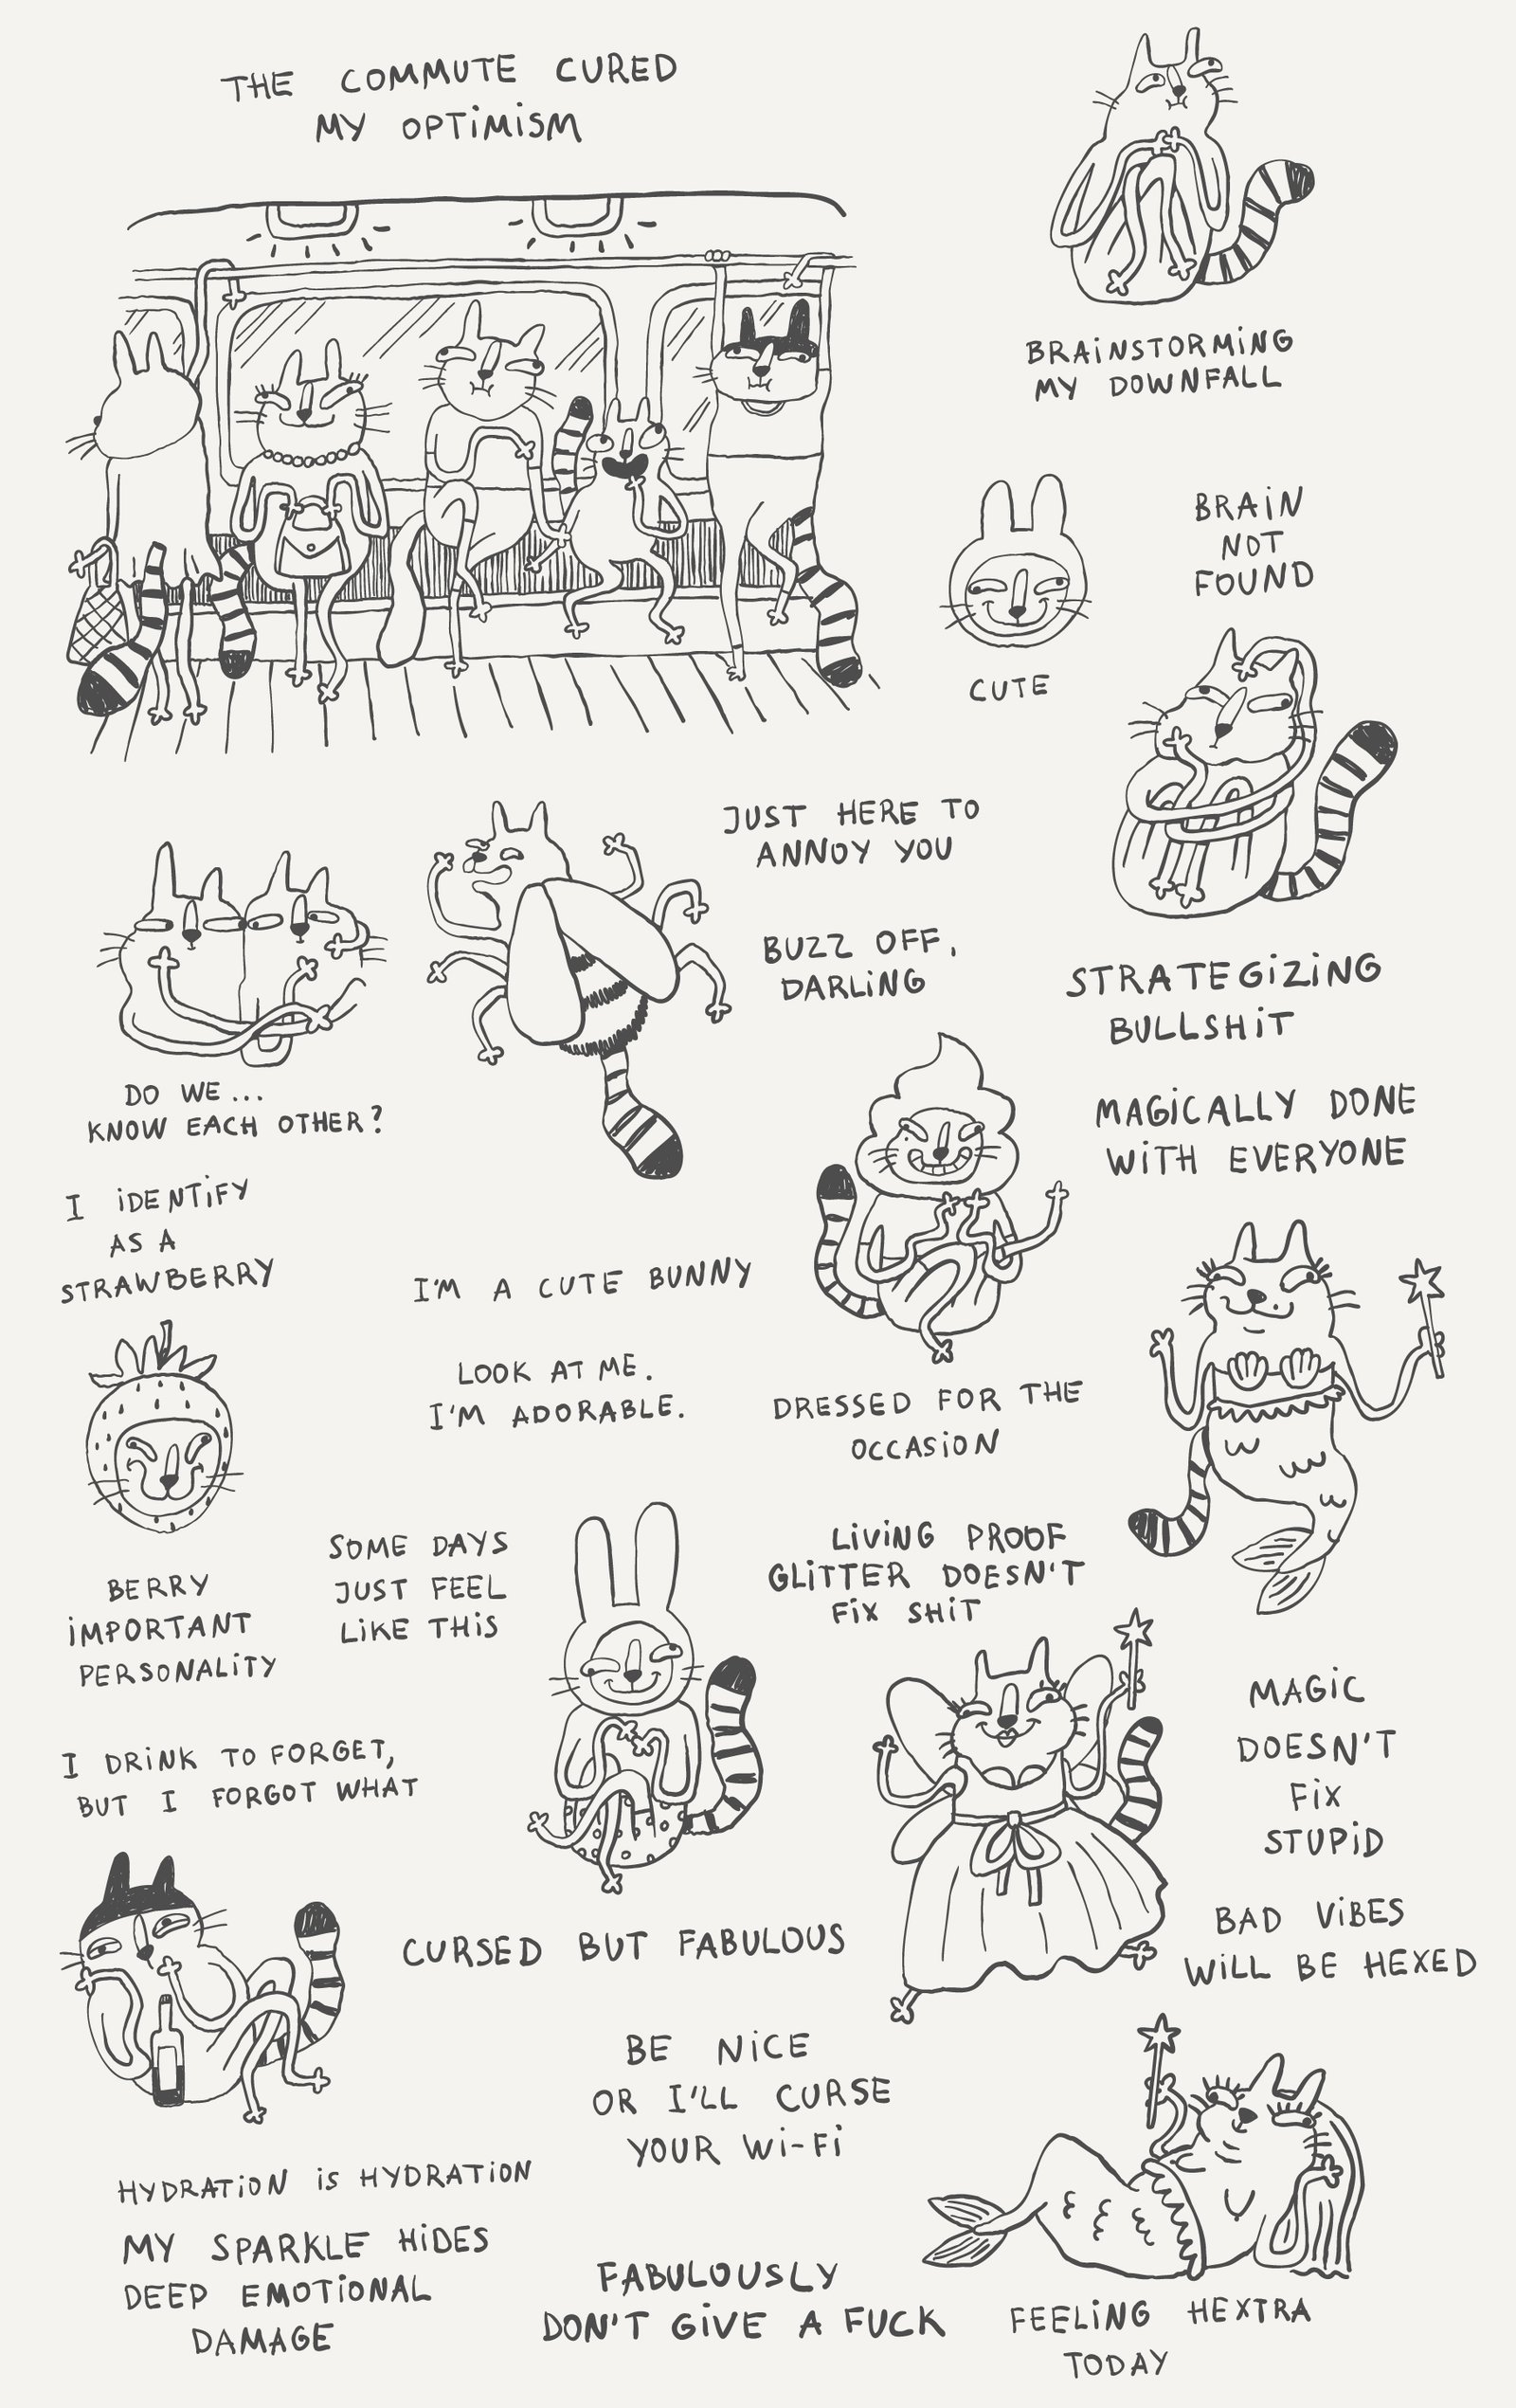 THE COMMUTE CURED
MY OPTIMISM
BRAINSTORMING
MY DOWNFALL
BRAIN
NOT
FOUND
CUTE
JUST HERE TO
ANNOY YOU
BUZZ OFF,
DARLING
STRATEGIZING
BULLSHIT
DO WE...
KNOW EACH OTHER?
MAGICALLY DONE
WITH EVERYONE
I IDENTIFY
AS A
STRAWBERRY
I'M A CUTE BUNNY
LOOK AT ME.
I'M ADORABLE.
DRESSED FOR THE
OCCASION
BERRY
IMPORTANT
PERSONALITY
SOME DAYS
JUST FEEL
LIKE THIS
LIVING PROOF
GLITTER DOESN'T
FIX SHIT
MAGIC
DOESN'T
FIX
STUPID
I DRINK TO FORGET,
BUT I FORGOT WHAT
CURSED BUT FABULOUS
BAD VIBES
WILL BE HEXED
BE NICE
OR I'LL CURSE
YOUR WI-FI
HYDRATION IS HYDRATION
MY SPARKLE HIDES
DEEP EMOTIONAL
DAMAGE
FABULOUSLY
DON'T GIVE A FUCK
FEELING HEXTRA
TODAY